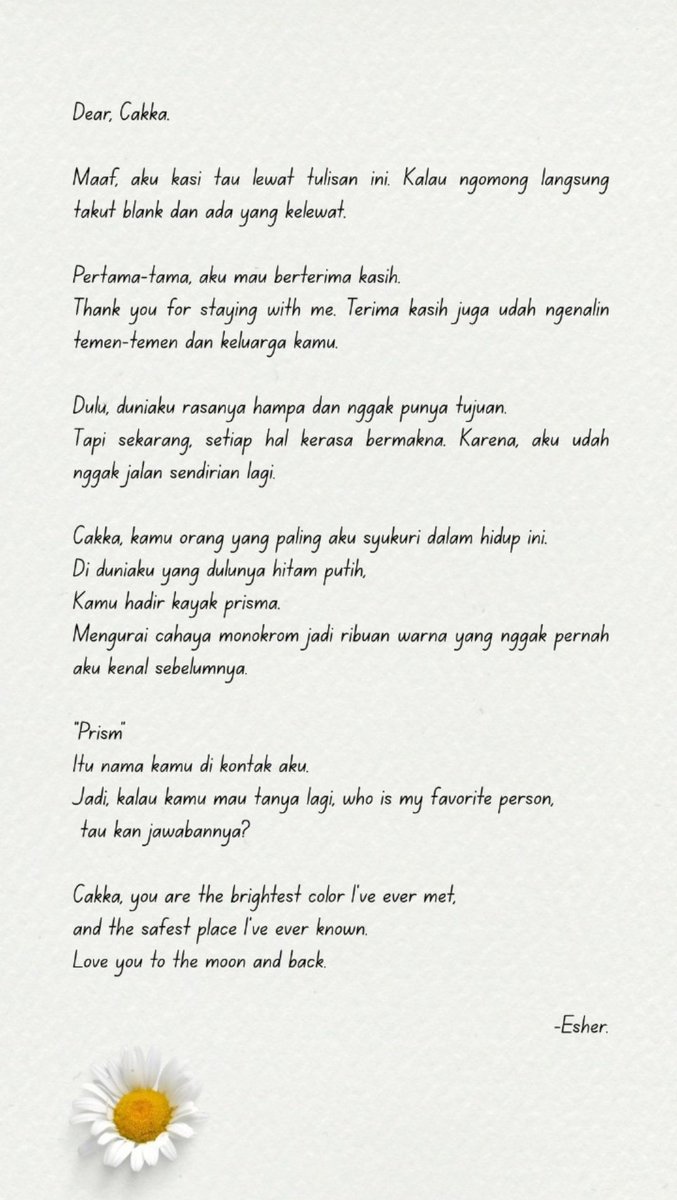 Dear, Cakka.
Maaf, aku kasi tau lewat tulisan ini. Kalau ngomong langsung
takut blank dan ada yang kelewat.
Pertama-tama, aku mau berterima kasih.
Thank you for staying with me. Terima kasih juga udah ngenalin
temen-temen dan keluarga kamu.
Dulu, duniaku rasanya hampa dan nggak punya tujuan.
Tapi sekarang, setiap hal kerasa bermakna. Karena, aku udah
nggak jalan sendirian lagi.
Cakka, kamu orang yang paling aku syukuri dalam hidup ini.
Di duniaku yang dulunya hitam putih,
Kamu hadir kayak prisma.
Mengurai cahaya monokrom jadi ribuan warna yang nggak pernah
aku kenal sebelumnya.
"Prism"
Itu nama kamu di kontak aku.
Jadi, kalau kamu mau tanya lagi, who is my favorite person,
tau kan jawabannya?
Cakka, you are the brightest color I've ever met,
and the safest place I've ever known.
Love you to the moon and back.
-Esher.